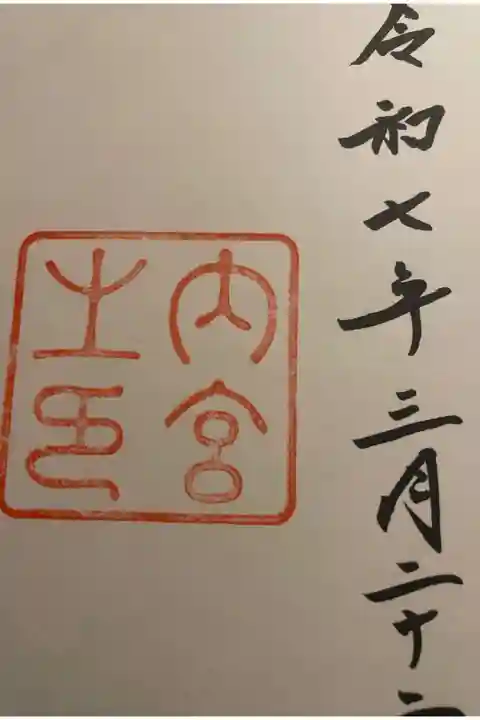 令和七年三月二十二
内宮
之印